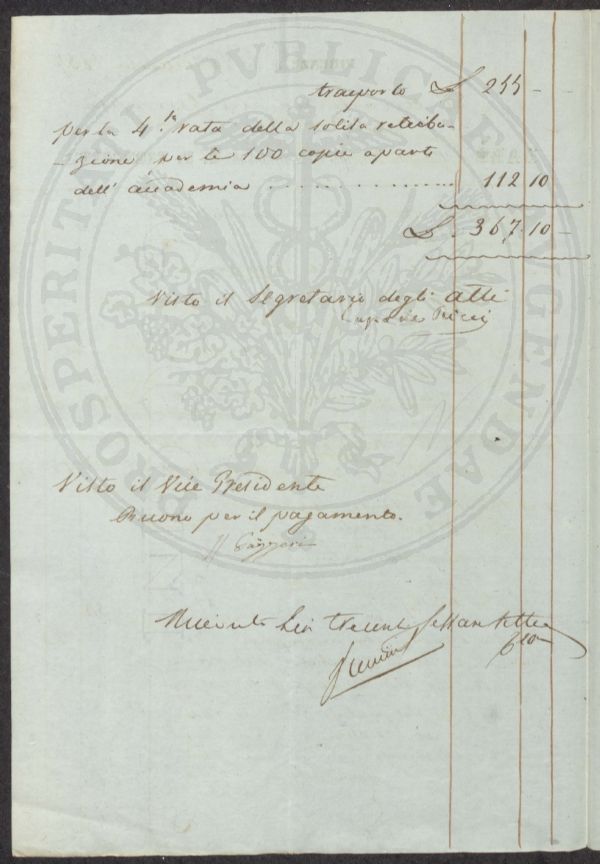 trasporto £ 255 - -
per la 4.ta rata della solita retribu-
-zione per le 100 copie a parte
dell'accademia .................. 112 10
£. 367. 10 -
Visto il Segretario degli Atti
Ricci
Visto il Vice Presidente
Buono per il pagamento.
Gazzeri
Ricevuto Lire trecento sessantasette
PROSPERITATI PVBLICAE AVGENDAE